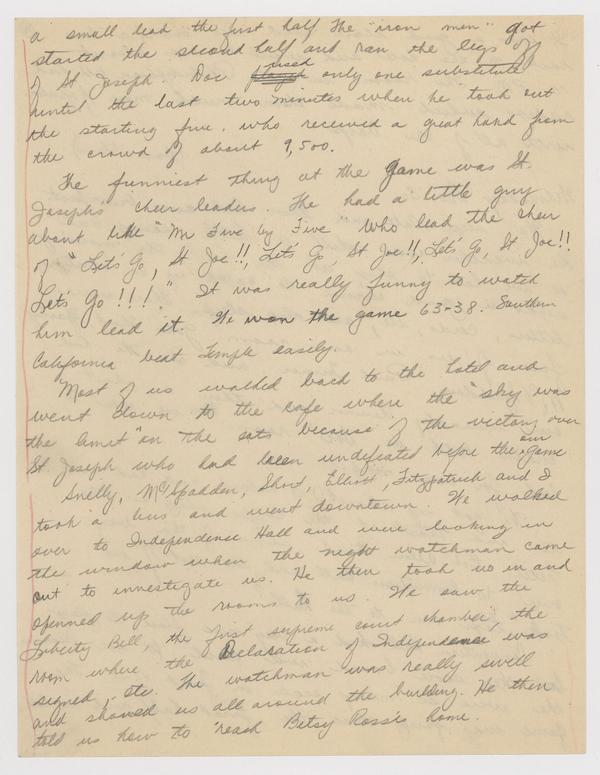 a small lead the first half. The "iron men" got
started the second half and ran the legs off
of St Joseph. Doc used only one substitute
until the last two minutes when he took out
the starting five, who received a great hand from
the crowd of about 9,500.
The funniest thing at the game was St.
Joseph's cheer leaders. The had a little guy
about like "Mr Five by Five" who lead the cheer
of "Let's Go, St Joe!!, Let's Go, St Joe!!, Let's Go, St Joe!!
Let's Go!!!" It was really funny to watch
him lead it. We won the game 63-38. Southern
California beat Temple easily.
Most of us walked back to the hotel and
went down to the cafe where the "sky was
the limit" on the eats because of the victory over
St Joseph who had been undefeated before the our game
Snelly, McSpadden, Short, Elliott, Fitzpatrick and I
took a bus and went downtown. We walked
over to Independence Hall and were looking in
the window when the night watchman came
out to investigate us. He then took us in and
openned up the rooms to us. We saw the
Liberty Bell, the first supreme court chamber, the
room where the Declaration of Independence was
signed, etc. The watchman was really swell
and showed us all around the building. He then
told us how to reach Betsy Ross's home.